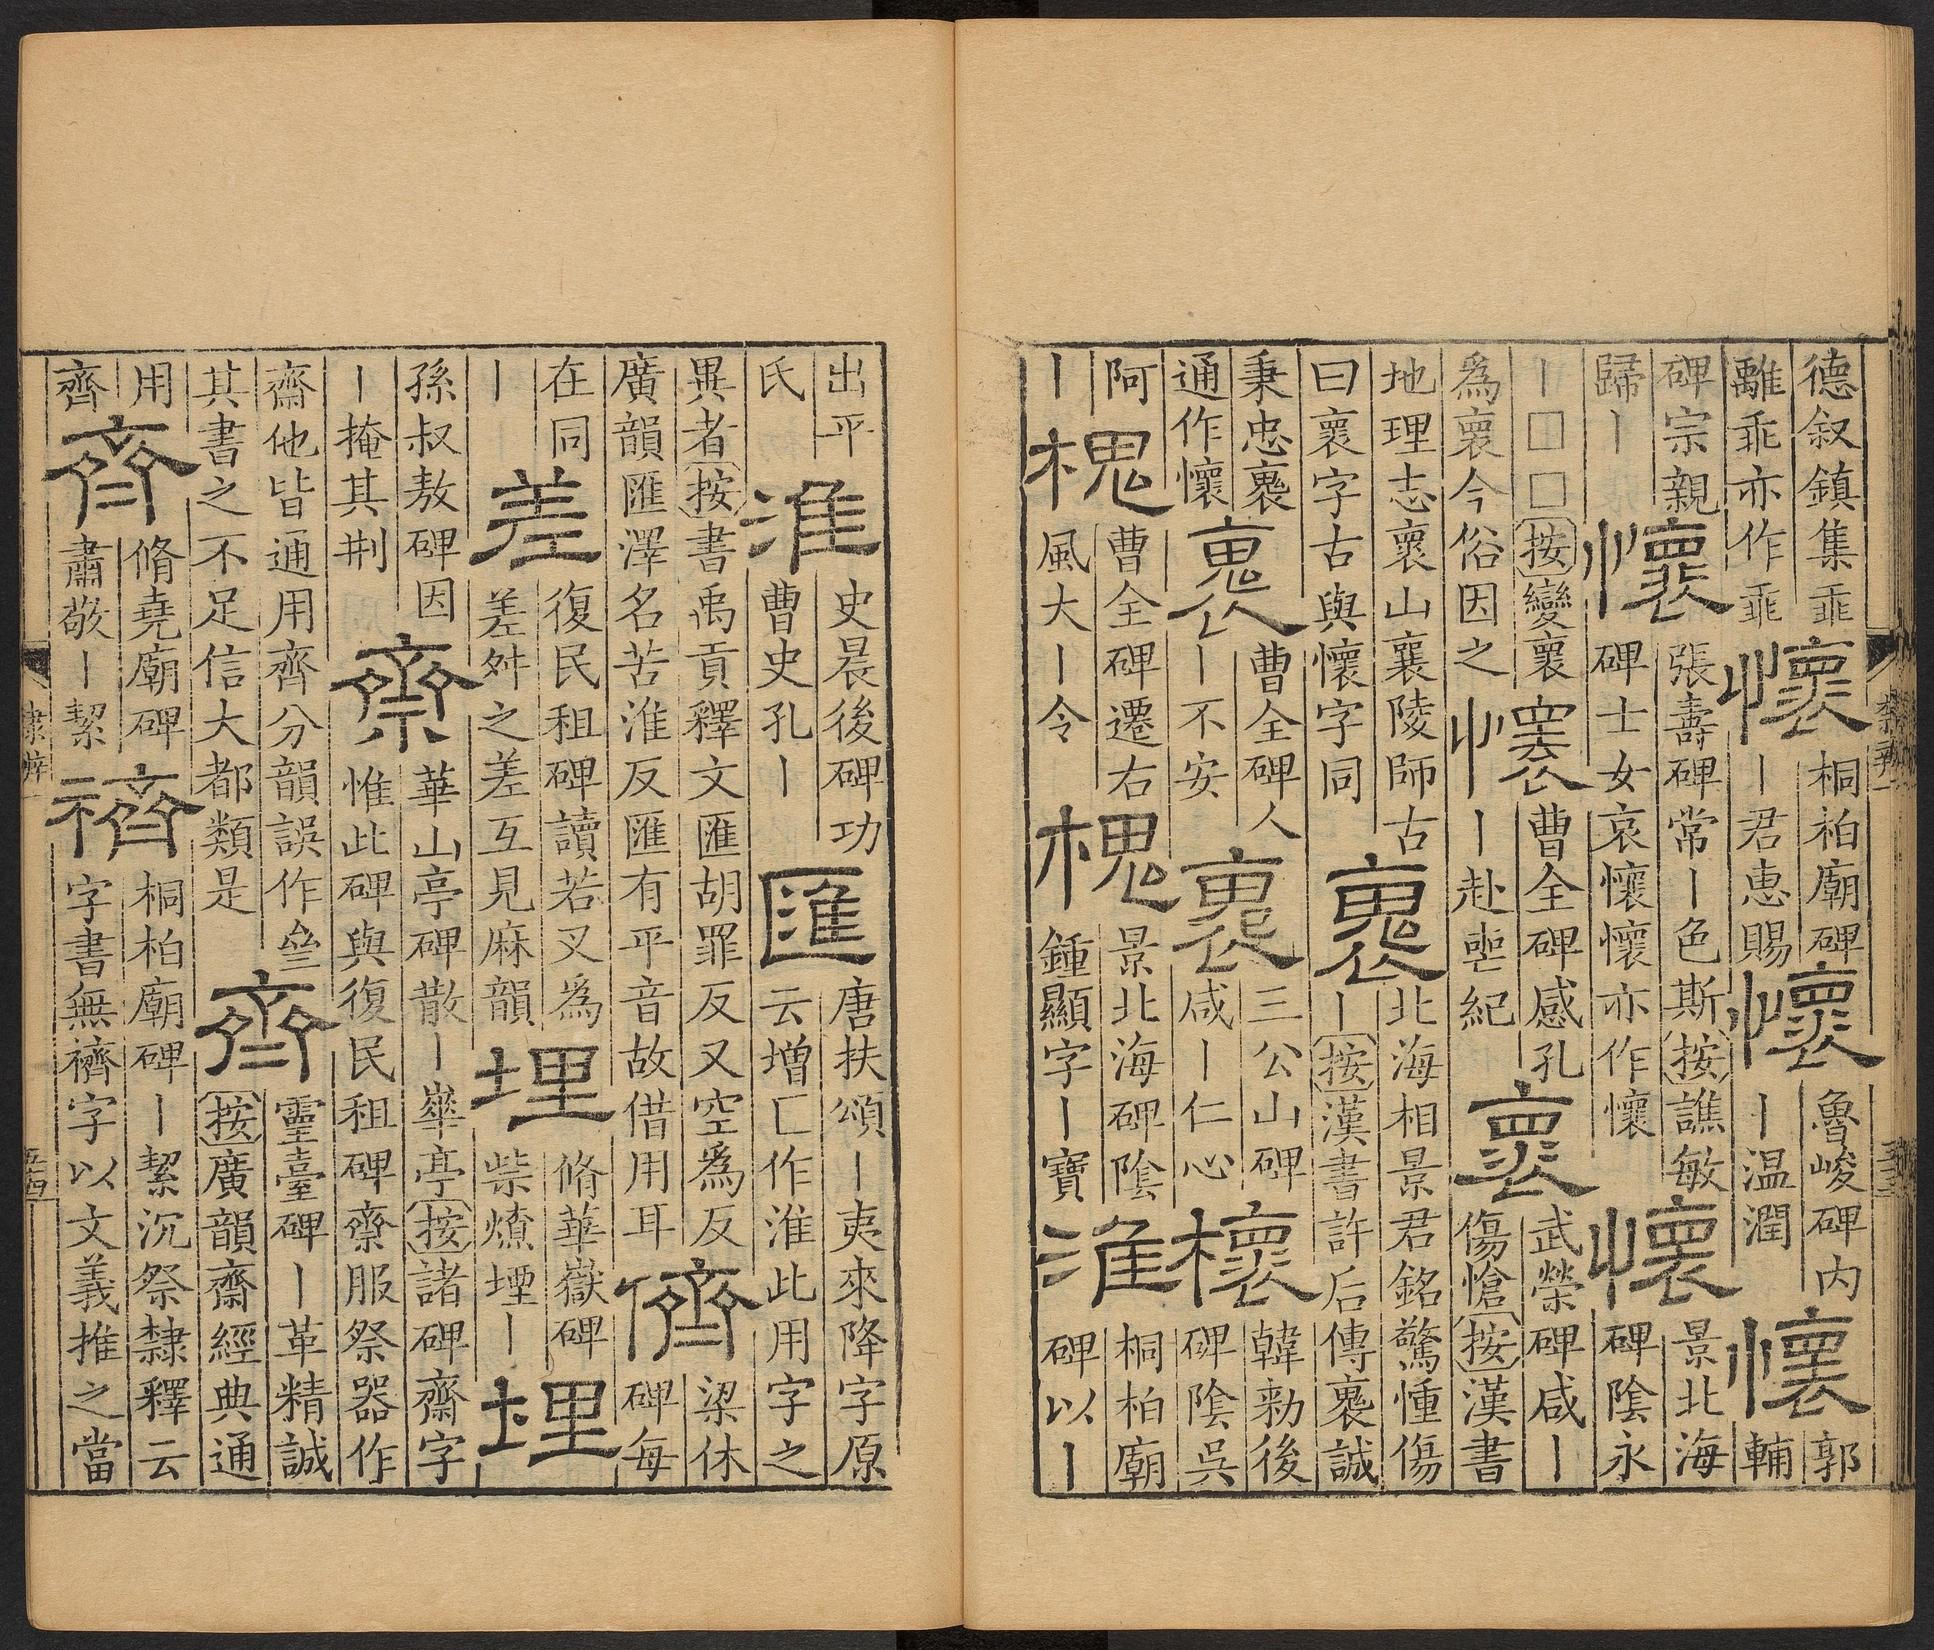 德叙鎮集乖
離乖亦作乖
懷
桐柏廟碑
丨君惠賜
懷
魯峻碑内
丨温潤
懷
郭
輔
碑宗親
歸丨
懷
張壽碑常丨色斯按譙敏
碑士女哀懷懷亦作懷
懷
景北海
碑陰永
丨□□按變褱
爲褱今俗因之
懷
曹全碑感孔
丨赴喪紀
褱
武榮碑咸丨
傷愴按漢書
地理志褱山襄陵師古
曰褱字古與懷字同
褢
北海相景君銘驚慟傷
丨按漢書許后傳褢誠
秉忠褢
通作懷
褢
曹全碑人
丨不安
褢
三公山碑
咸丨仁心
櫰
韓勑後
碑陰吳
阿
丨
槐
曹全碑遷右
風大丨令
槐
景北海碑陰
鍾顯字丨寶
淮
桐柏廟
碑以丨
出平
氏
淮
史晨後碑功
曹史孔丨
匯
唐扶頌丨夷來降字原
云增匚作淮此用字之
異者按書禹貢釋文匯胡罪反又空爲反
廣韻匯澤名苦淮反匯有平音故借用耳
儕
梁休
碑每
在同
丨
差
復民租碑讀若叉爲
差舛之差差互見麻韻
埋
脩華嶽碑
柴燎堙丨
埋
孫叔敖碑因
丨掩其荆
齋
華山亭碑散丨崋亭按諸碑齋字
惟此碑與復民租碑齋服祭器作
齋他皆通用齊分韻誤作亝
其書之不足信大都類是
齊
靈臺碑丨革精誠
按廣韻齋經典通
用
齊
齊
脩堯廟碑
肅敬丨絜
䄢
桐柏廟碑丨絜沉祭隸釋云
字書無䄢字以文義推之當
隸辨
五十四